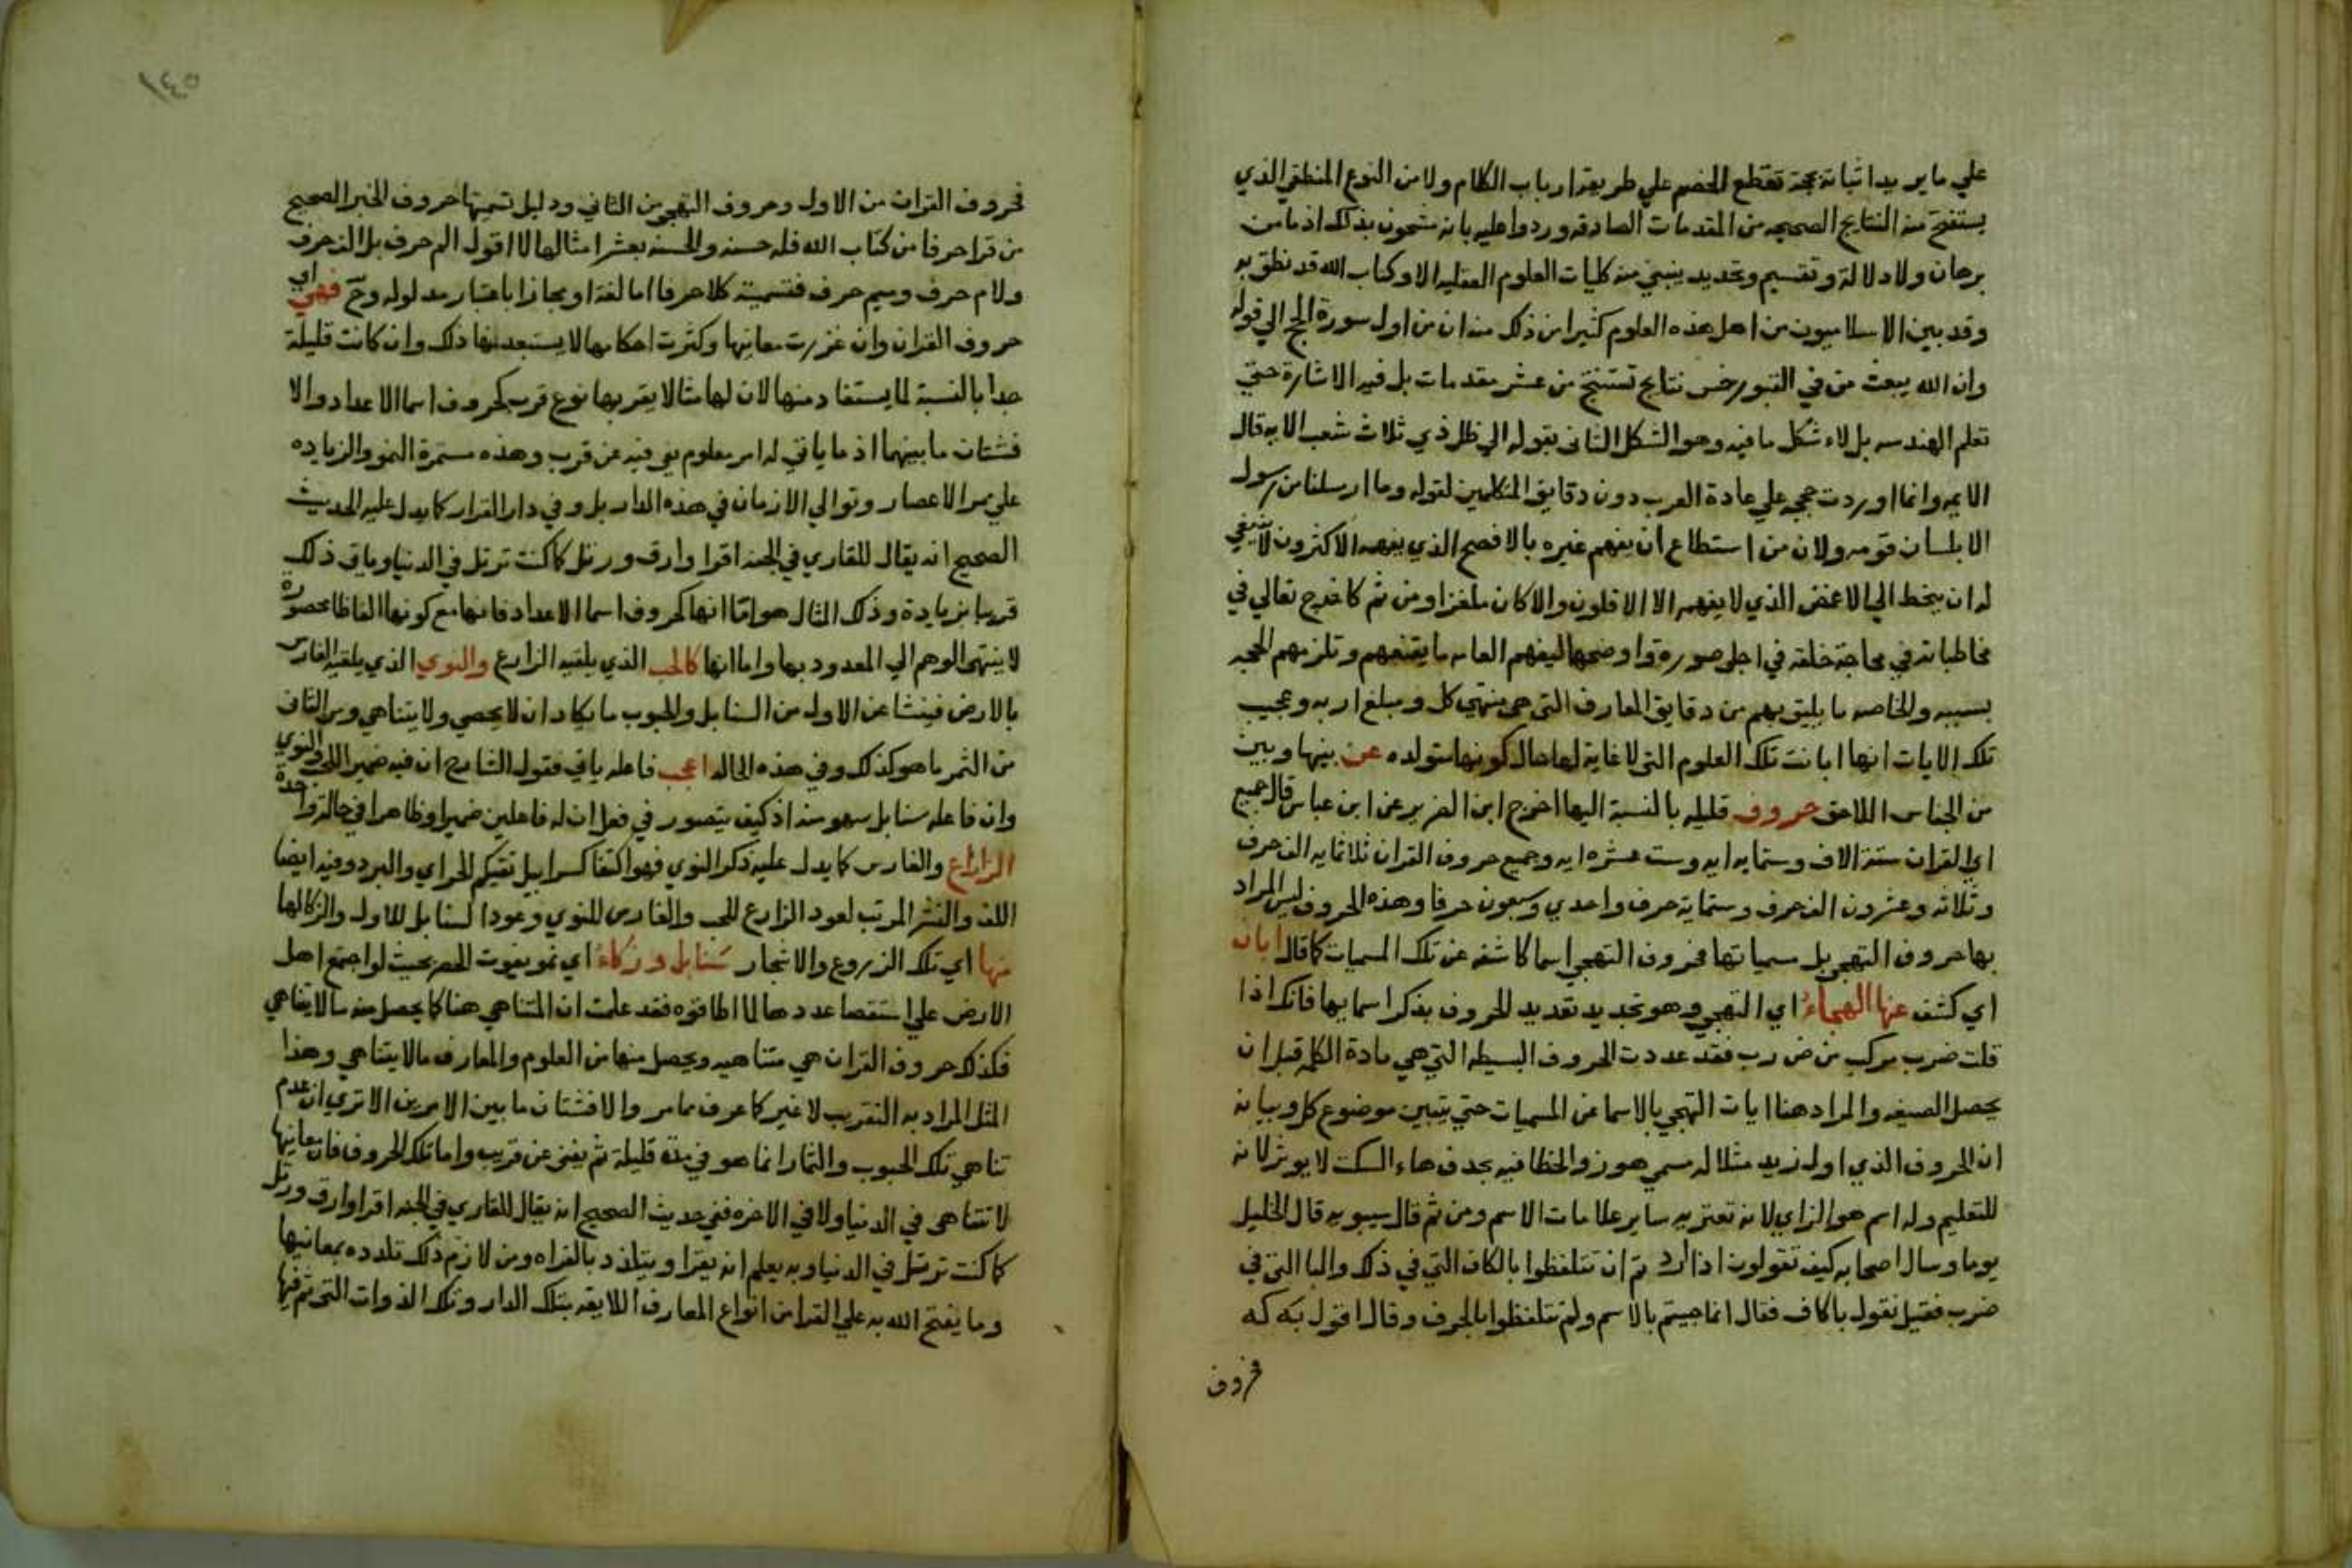 علي ما يريد اثباته بحجة تقطع الخصم علي طريقة ارباب الكلام ولا من النوع المنطقي الذي
يستنتج منه النتايج الصحيحه من المقدمات الصادقه وردوا عليه بانه مشحون بذلك اذ ما من
برهان ولا دلالة وتقسيم وتحديد ينبني من كليات العلوم العقليه الا وكتاب الله قد نطق به
وقد بين الاسلاميون من اهل هذه العلوم كثيرا من ذلك منه ان من اول سورة الحج الي قوله
وان الله يبعث من في القبور خمس نتايج تستنتج من عشر مقدمات بل فيه الاشارة حتي
تعلم الهندسه بل لاء شكل ما فيه وهو الشكل الثاني بقوله الي ظل ذي ثلاث شعب الايه قال
الايمه وانما اوردت حججه علي عادة العرب دون دقايق المتكلمين لقوله وما ارسلنا من رسول
الا بلسان قومه ولان من استطاع ان يفهم غيره بالافصح الذي يفهمه الاكثرون لا ينبغي
له ان ينحط الي الاغمض الذي لا يفهمه الا الاقلون والا كان ملغزا ومن ثم كا خرج تعالي في
مخاطباته في محاجة خلقه في اجلي صورة واوضحها ليفهم العامه ما يقنعهم وتلزمهم الحجه
بسببه والخاصه ما يليق بهم من دقايق المعارف التي هي منتهي كل ومبلغ اربه وعجيب
تلك الايات انها ابانت تلك العلوم التي لا غاية لها حال كونها متولده عن بينها وبين
من الجناس اللاحق حروف قليله بالنسبة اليها اخرج ابن الضريس عن ابن عباس قال جميع
اي القران ستة الاف وستمايه ايه وست عشره ايه وجميع حروف القران ثلاثمايه الف حرف
وثلاثه وعشرون الف حرف وستماية حرف واحدي وسبعون حرفا وهذه الحروف ليس المراد
بها حروف التهجي بل مسمياتها فحروف التهجي اسما كاشفه عن تلك المسميات كما قال ابان
اي كشف عنها الهجاء اي التهجي وهو تجديد تعديد الحروف بذكر اسمايها فانك اذا
قلت ضرب مركب من ض رب فقد عددت الحروف البسيطه التي هي مادة الكلمه قبل ان
يحصل الصيغه والمراد هنا ايات التهجي بالاسما عن المسميات حتي يتبين موضوع كل وبيانه
ان الحروف الذي اول زيد مثلا له مسمي هو ز والخطا فيه بحذف هاء السكت لا يوثر لانه
للتعليم وله اسم هو الزاي لانه تعتريه ساير علامات الاسم ومن ثم قال سيبويه قال الخليل
يوما وسال اصحابه كيف تقولون اذا اردتم ان تتلفظوا بالكاف التي في ذلك والبا التي في
ضرب فقيل نقول باكاف فقال انما جيتم بالاسم ولم تتلفظوا بالحرف وقال اقول به كه
فحروف
١٤٥
فحروف القران من الاول وحروف التهجي من الثاني ودليل تسميتها حروف الخبر الصحيح
من قرا حرفا من كتاب الله فله حسنه والحسنه بعشر امثالها لا اقول الم حرف بل الف حرف
ولام حرف وميم حرف فتسمية كلا حرفا اما لغة او مجازا باعتبار مدلوله وح فهي اي
حروف القران وان غزرت معانيها وكثرت احكامها لا يستبعد منها ذلك وان كانت قليلة
جدا بالنسبة لما يستفاد منها لان لها مثالا يقربها نوع قرب كحروف اسما الاعداد والا
فشتان ما بينهما اذ ما ياتي له امر معلوم يفي فيه عن قرب وهذه مستمرة النمو والزياده
علي ممر الاعصار وتوالي الازمان في هذه الدار بل وفي دار القرار كما يدل عليه الحديث
الصحيح انه يقال للقاري في الجنه اقرا وارق ورتل كما كنت ترتل في الدنيا وياتي ذلك
قريبا بزيادة وذلك المثال هو اما انها كحروف اسما الاعداد فانها مع كونها الفاظا محصورة
لا ينتهي الوهم الي المعدود بها واما انها كالحب الذي يلقيه الزارع والنوي الذي يلقيه الغارس
بالارض فينشا عن الاول من السنابل والحبوب ما يكاد ان لا يحصي ولا يتناهي وعن الثاني
من الثمر ما هو كذلك وفي هذه الحاله اعجب فاعله ياتي فقول الشارح ان فيه ضمير الحب والنوي
وان فاعله سنابل سهو منه اذ كيف يتصور في فعل ان له فاعلين ضميرا وظاهرا في حالة واحدة
الزراع والغارس كما يدل عليه ذكر النوي فهو اكتفا كسرابيل تقيكم الحر اي والبرد وفيه ايضا
اللف والنشر المرتب لعود الزارع للحب والغارس للنوي وعود السنابل للاول والزكا لها
منها اي تلك الزروع والاشجار سنابل وزكاء اي نمو يفوت الحصر بحيث لو اجتمع اهل
الارض علي استقصا عددها لما اطاقوه فقد علمت ان المتناهي هنا كما يحصل منه ما لا يتناهي
فكذلك حروف القران هي متناهيه ويحصل منها من العلوم والمعارف ما لا يتناهي وهذا
المثل المراد به التقريب لا غير كما عرف مما مر والا فشتان ما بين الامرين الا تري ان عدم
تناهي تلك الحبوب والثمار انما هو في مدة قليلة ثم يفني عن قريب واما تلك الحروف فان معانيها
لا تتناهي في الدنيا ولا في الاخره ففي حديث الصحيح انه يقال للقاري في الجنه اقرا وارق ورتل
كما كنت ترتل في الدنيا وبه يعلم انه يقرا ويتلذذ بالقراه ومن لازم ذلك تلذذه بمعانيها
وما يفتح الله به علي القرا من انواع المعارف اللايقه بتلك الدار وتلك الذوات التي تم فيها